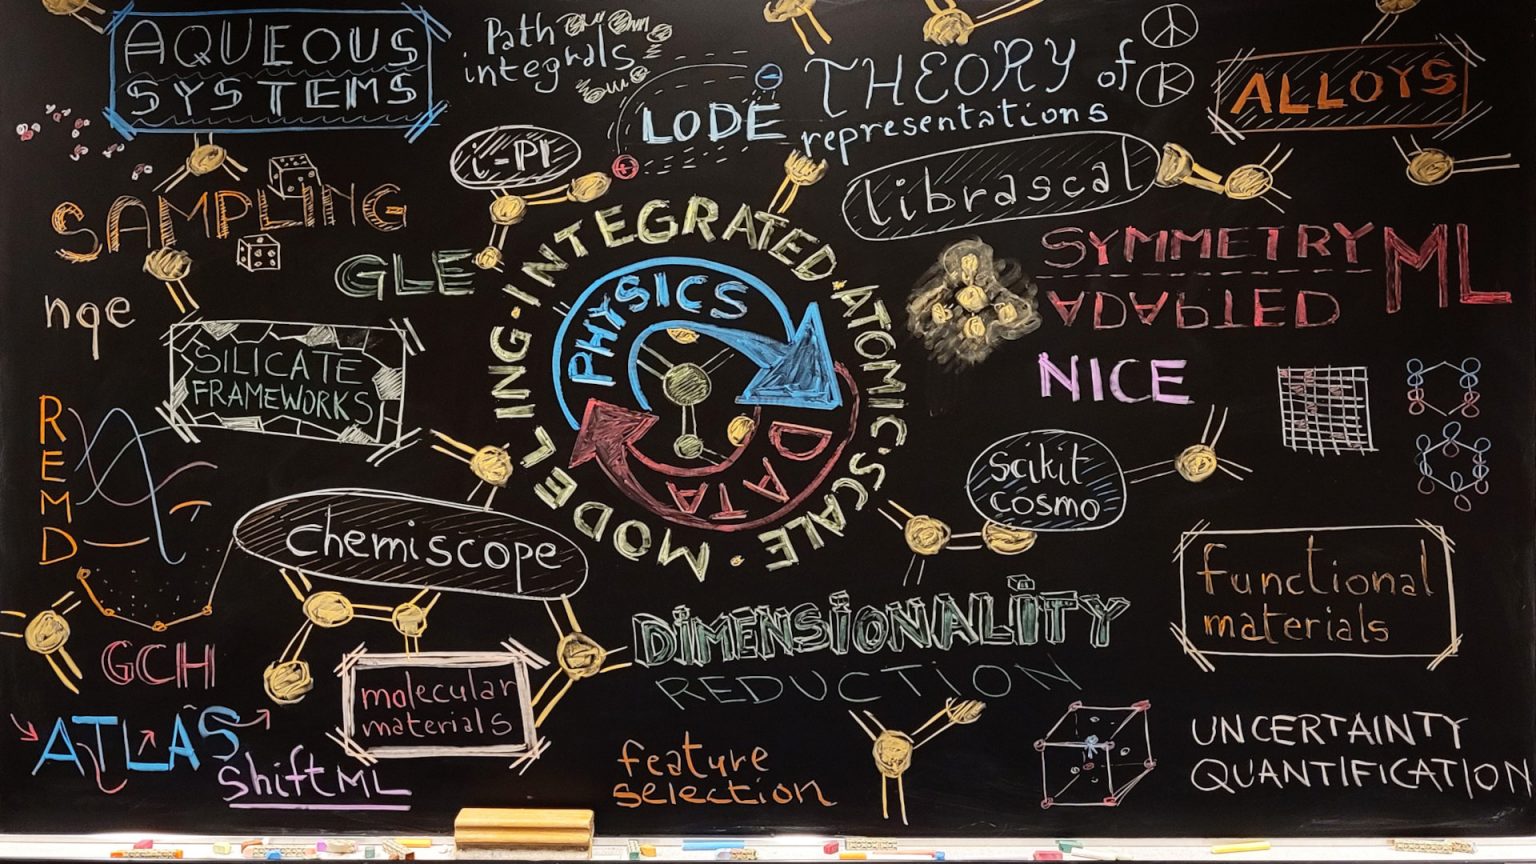 AQUEOUS
SYSTEMS
Path
integrals
LODE
THEORY of
representations
ALLOYS
i-PI
librascal
SAMPLING
GLE
nqe
SYMMETRY
ADAPTED
ML
NICE
SILICATE
FRAMEWORKS
PHYSICS
DATA
INTEGRATED · ATOMIC-SCALE · MODELING ·
REMD
scikit
cosmo
chemiscope
functional
materials
DIMENSIONALITY
REDUCTION
GCH
molecular
materials
ATLAS
shiftML
feature
selection
UNCERTAINTY
QUANTIFICATION